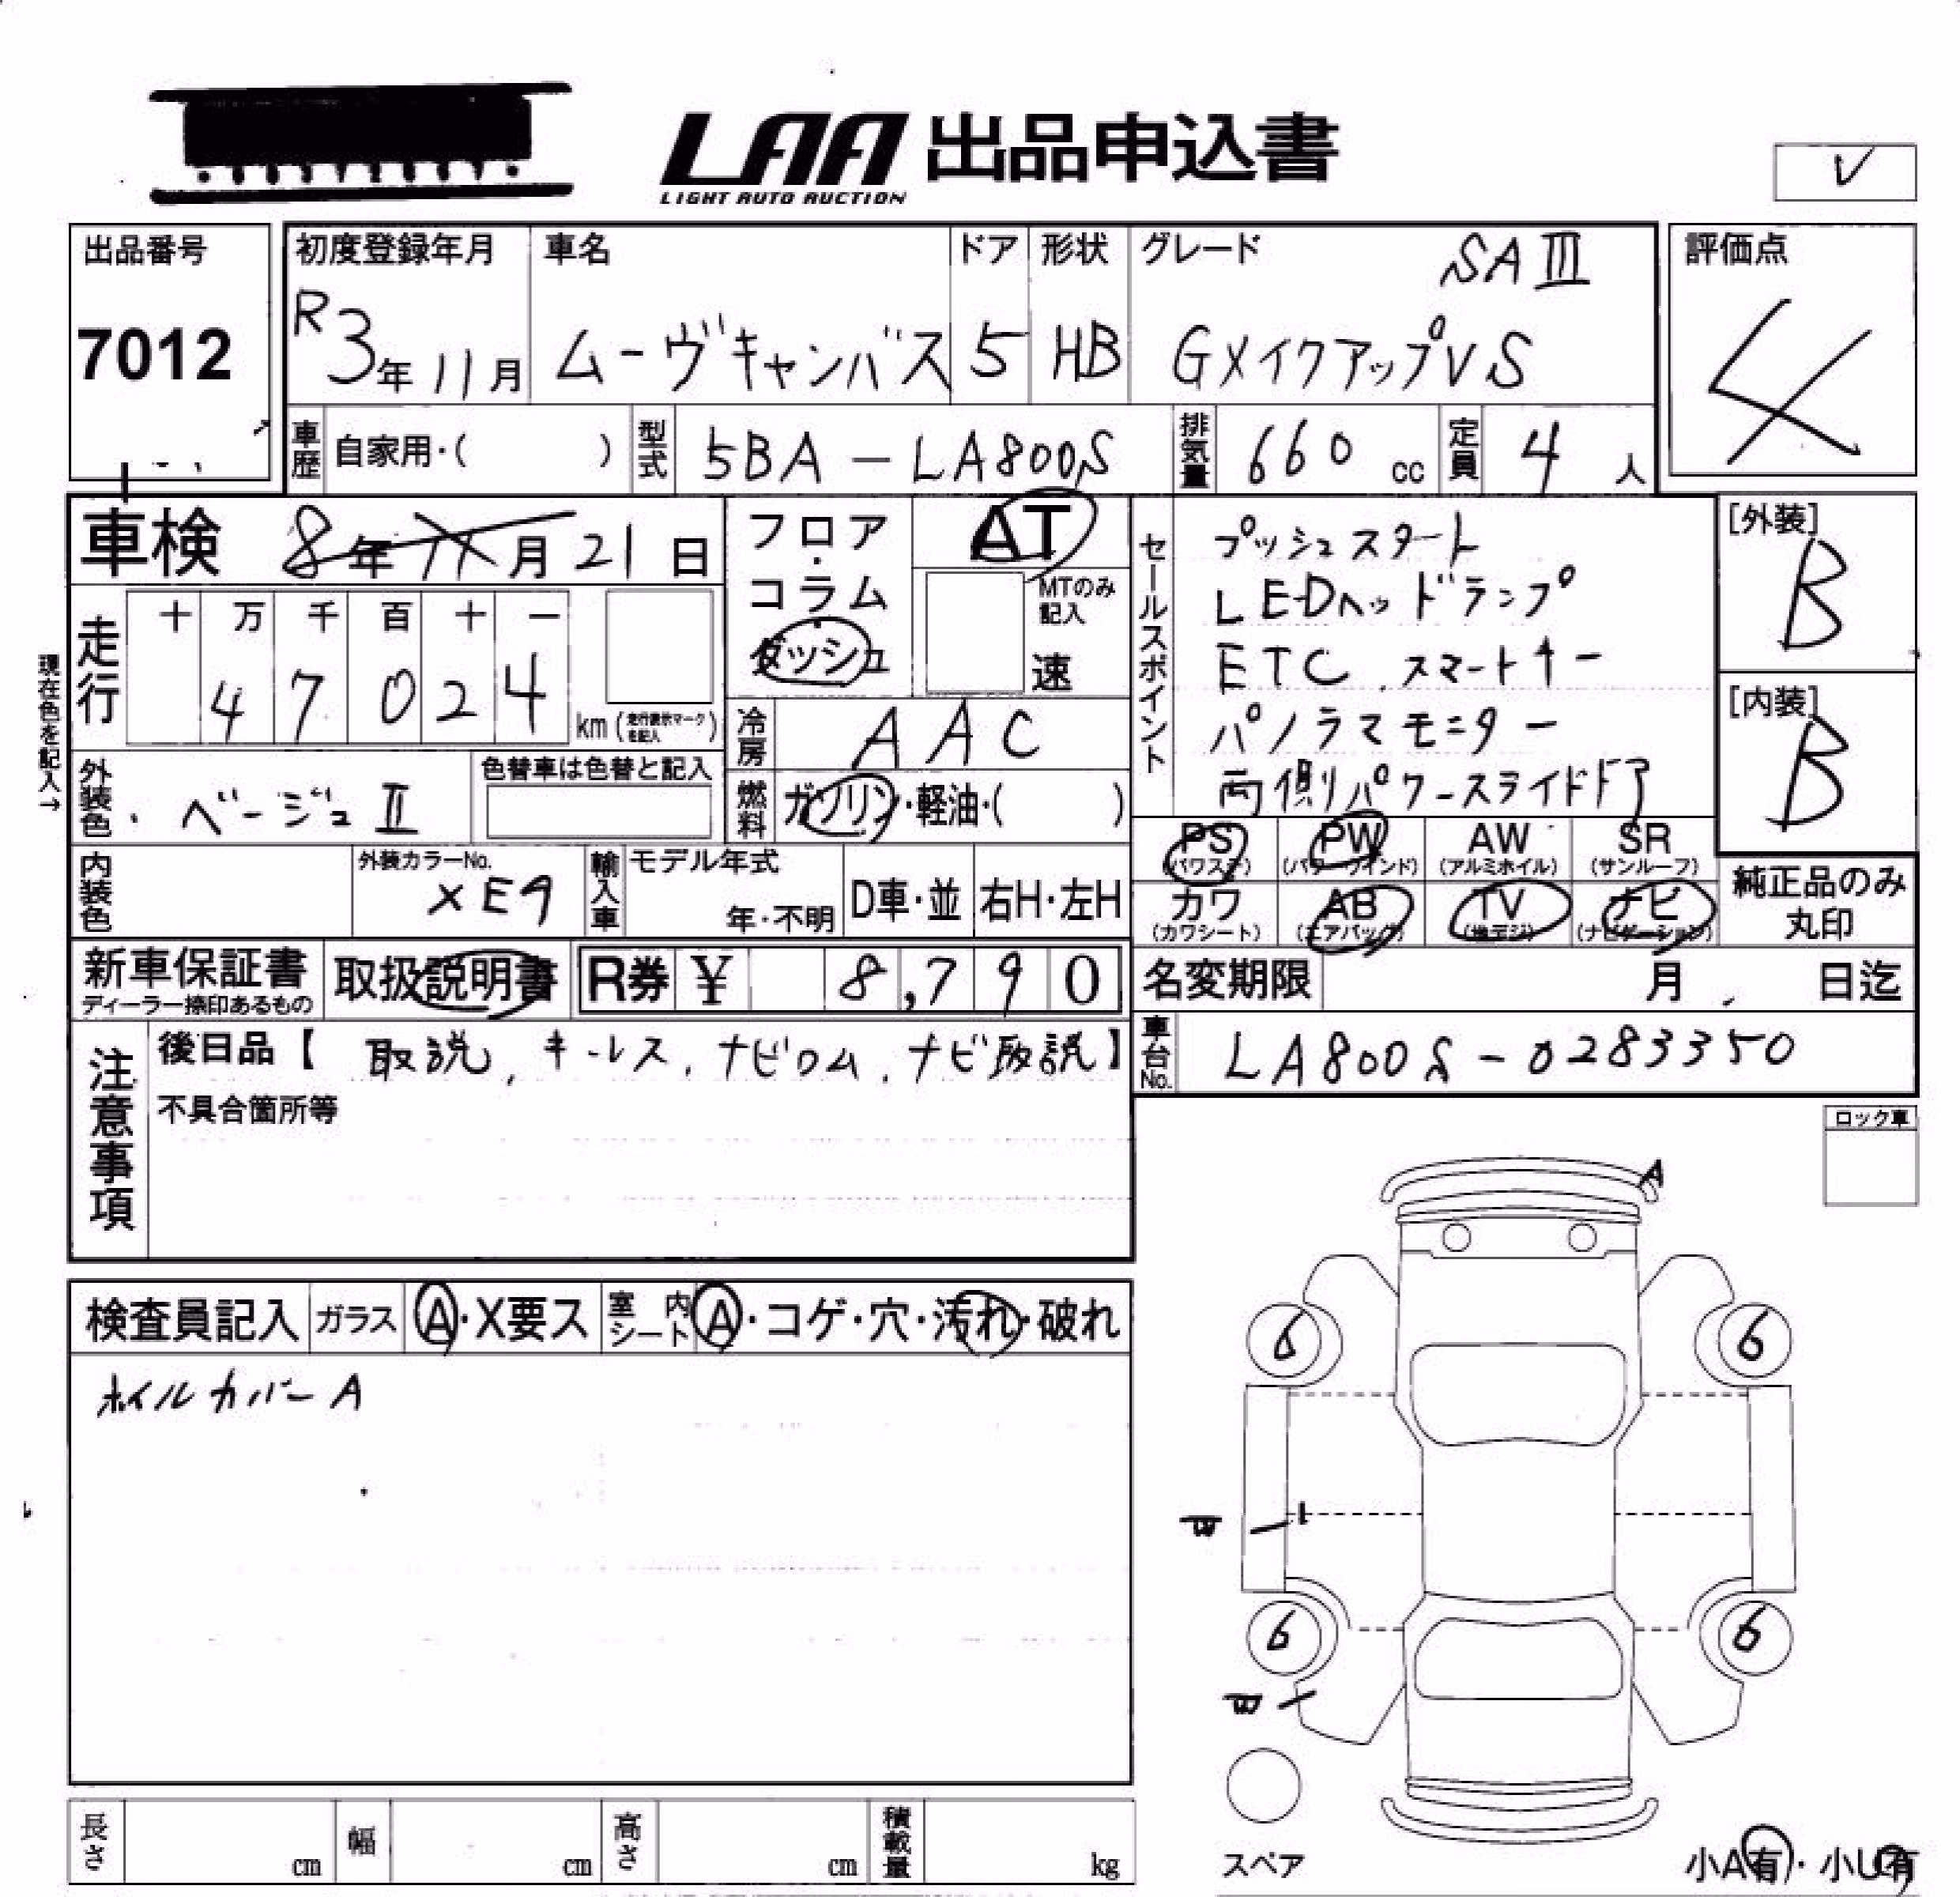 LAA 出品申込書
LIGHT AUTO AUCTION
V
出品番号
7012
初度登録年月
R3年11月
車名
ムーヴキャンバス
ドア
5
形状
HB
グレード
SAⅢ
GメイクアップVS
評価点
4
車歴 自家用・( )
型式 5BA-LA800S
排気量 660 cc
定員 4 人
車検 8年11月21日
フロア・コラム・ダッシュ
AT
MTのみ記入
速
走行
十 万 千 百 十 一
4 7 0 2 4
km (走行表示マークを記入)
現在色を記入→
冷房 AAC
外装色 ベージュⅡ
色替車は色替と記入
燃料 ガソリン・軽油・( )
内装色
外装カラーNo.
XE9
輸入車
モデル年式
年・不明
D車・並
右H・左H
セールスポイント
プッシュスタート
LEDヘッドランプ
ETC、スマートキー
パノラマモニター
両側パワースライドドア
[外装]
B
[内装]
B
PS (パワステ) PW (パワーウインド) AW (アルミホイル) SR (サンルーフ)
カワ (カワシート) AB (エアバッグ) TV (地デジ) ナビ (ナビゲーション)
純正品のみ丸印
新車保証書
ディーラー捺印あるもの
取扱説明書
R券 ¥ 8,790
名変期限 月 日迄
車台No. LA800S-0283350
注意事項
後日品【 取説、キーレス、ナビロム、ナビ取説】
不具合箇所等
ロック車
検査員記入 ガラス A・X要ス 室内シート A・コゲ・穴・汚れ・破れ
ホイルカバーA
A
6 6
6 6
スペア
小A有・小U有
長さ cm 幅 cm 高さ cm 積載量 kg